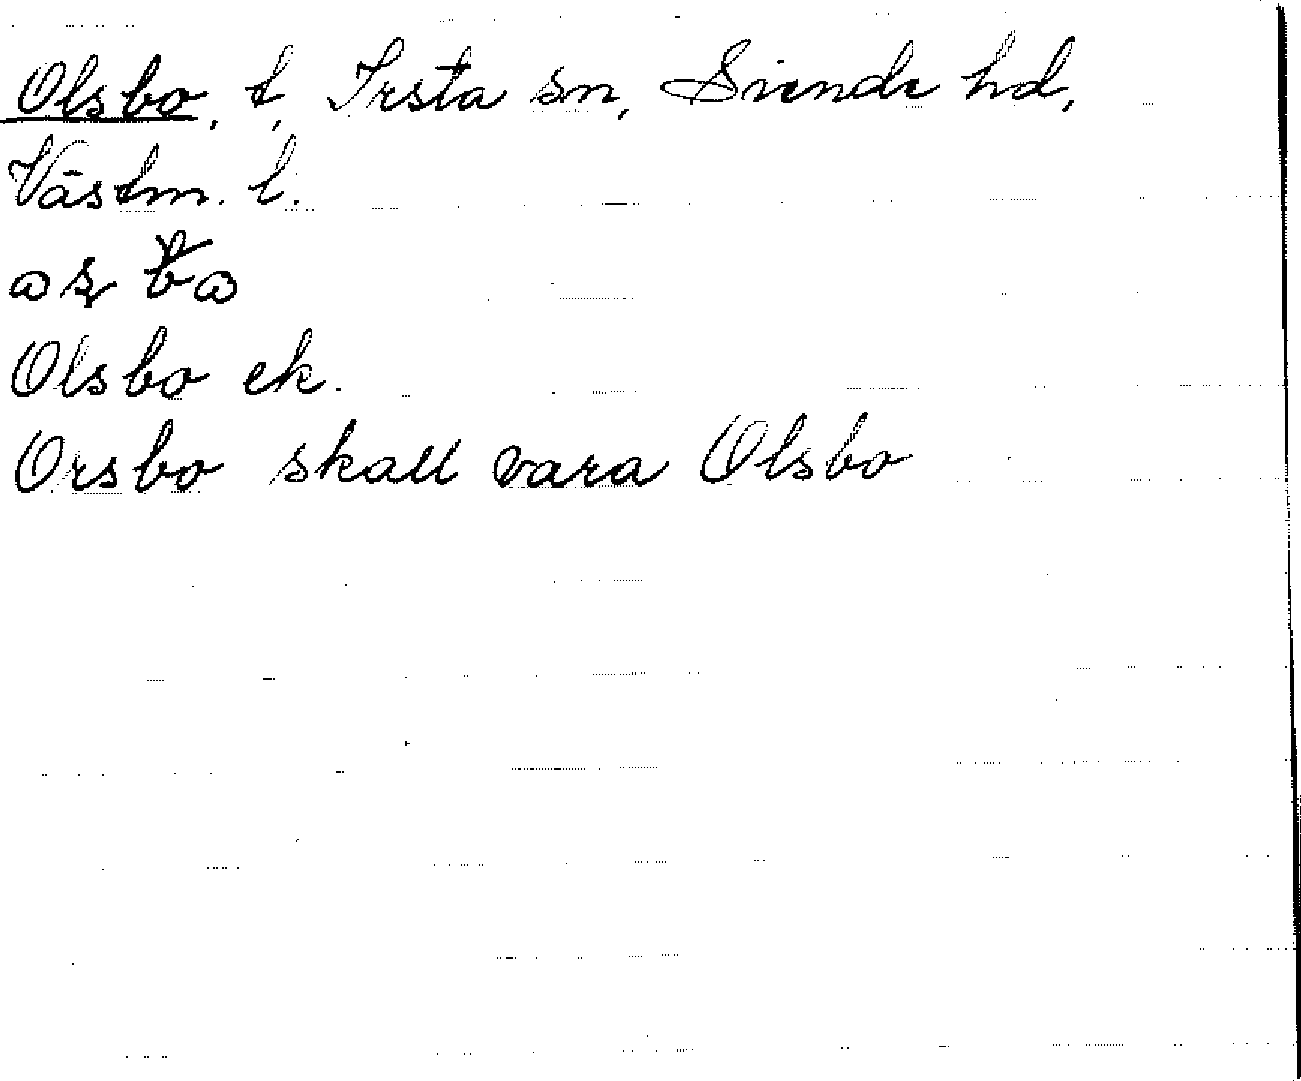 Olsbo, t, Irsta sn, Siende hd,
Västm. l.
Olsbo ek.
Orsbo skall vara Olsbo